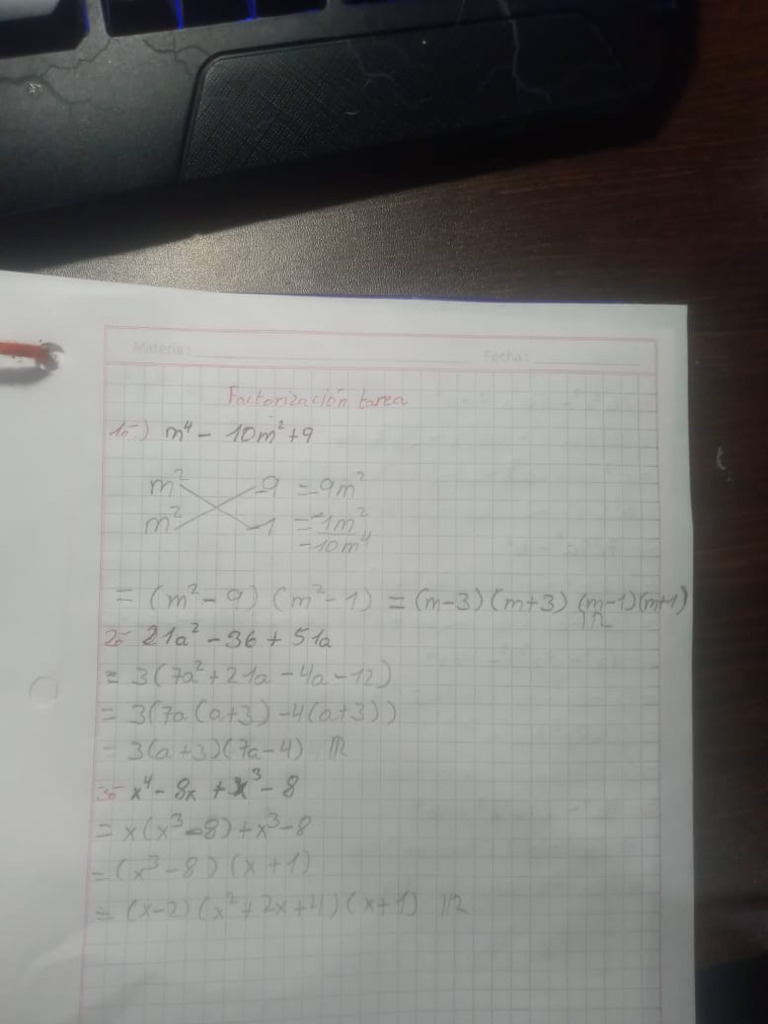 Materia:
Fecha:
Factorización tarea
1º-) m⁴ - 10m² + 9
m² -9 = -9m²
m² -1 = -1m²
-10m⁴
= (m² - 9) (m² - 1) = (m-3) (m+3) (m-1)(m+1)
R
2º- 21a² - 36 + 51a
= 3(7a² + 21a - 4a - 12)
= 3(7a(a+3) - 4(a+3))
= 3(a+3)(7a-4) R
3º- x⁴ - 8x + x³ - 8
= x(x³ - 8) + x³ - 8
= (x³ - 8) (x + 1)
= (x-2) (x² + 2x + 4) (x+1) R